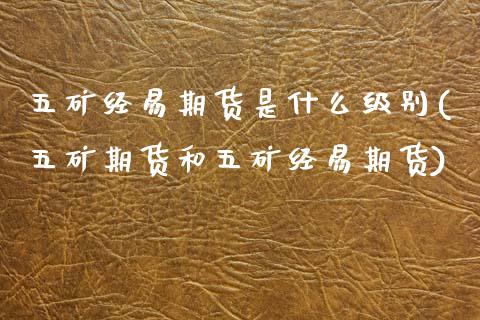 五矿经易期货是什么级别(
五矿期货和五矿经易期货)